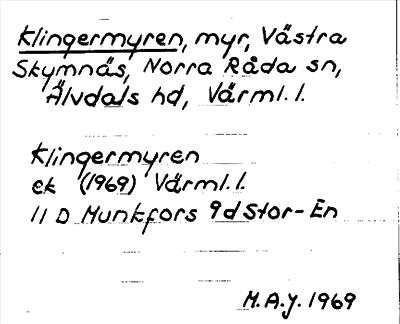 Klingermyren, myr, Västra
Skymnäs, Norra Råda sn,
Älvdals hd, Värml. l.
Klingermyren
ek (1969) Värml. l.
11 D Munkfors 9d Stor-En
M.A.J. 1969